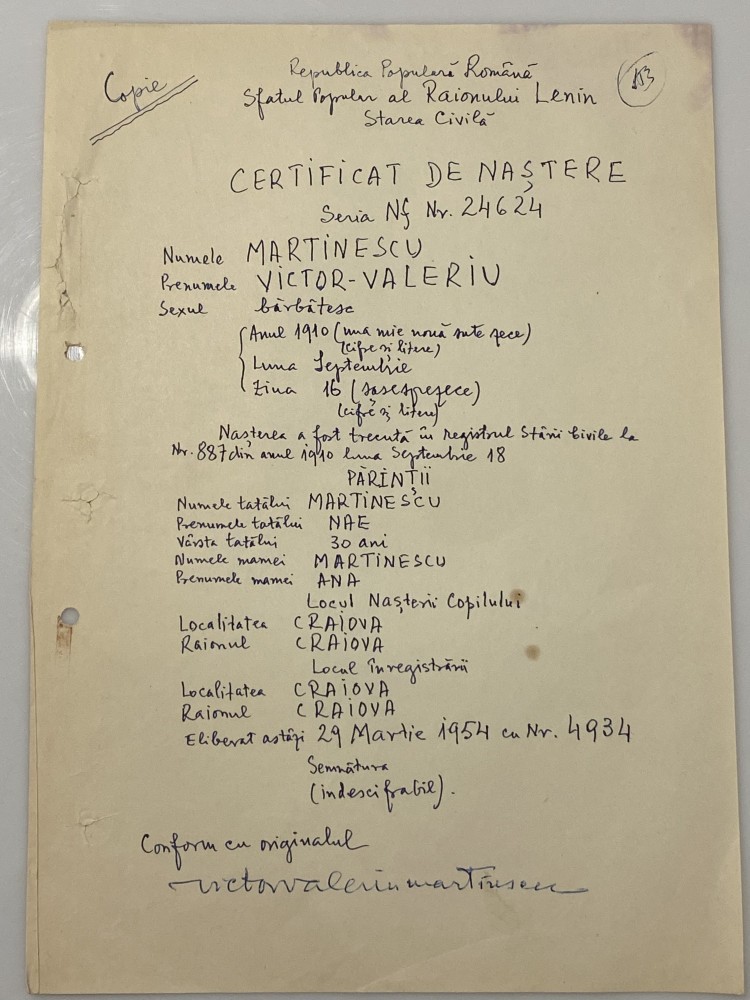 Copie
Republica Populară Română
Sfatul Popular al Raionului Lenin
Starea Civilă
CERTIFICAT DE NAȘTERE
Seria Nf Nr. 24624
Numele MARTINESCU
Prenumele VICTOR-VALERIU
Sexul bărbătesc
Anul 1910 (una mie nouă sute zece)
(cifre și litere)
Luna Septembrie
Ziua 16 (șasesprezece)
(cifre și litere)
Nașterea a fost trecută în registrul Stării Civile la
Nr. 887 din anul 1910 luna Septembrie 18
PĂRINȚII
Numele tatălui MARTINESCU
Prenumele tatălui NAE
Vârsta tatălui 30 ani
Numele mamei MARTINESCU
Prenumele mamei ANA
Locul Nașterii Copilului
Localitatea CRAIOVA
Raionul CRAIOVA
Locul înregistrării
Localitatea CRAIOVA
Raionul CRAIOVA
Eliberat astăzi 29 Martie 1954 cu Nr. 4934
Semnătura
(indescifrabil).
Conform cu originalul
victorvaleriumartinescu